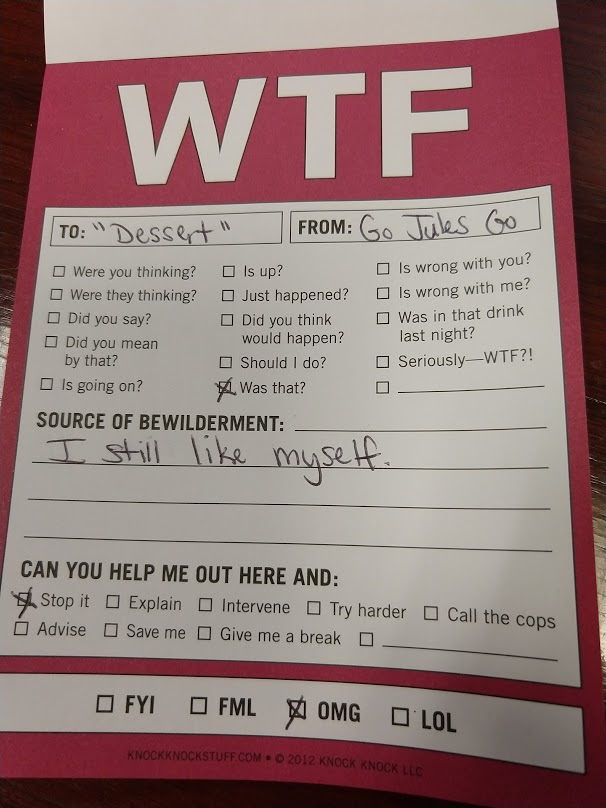 WTF
TO: "Dessert"
FROM: Go Jules Go
Were you thinking?
Were they thinking?
Did you say?
Did you mean
by that?
Is going on?
Is up?
Just happened?
Did you think
would happen?
Should I do?
Was that?
Is wrong with you?
Is wrong with me?
Was in that drink
last night?
Seriously—WTF?!
SOURCE OF BEWILDERMENT:
I still like myself.
CAN YOU HELP ME OUT HERE AND:
Stop it Explain Intervene Try harder Call the cops
Advise Save me Give me a break
FYI FML OMG LOL
KNOCKKNOCKSTUFF.COM • © 2012 KNOCK KNOCK LLC